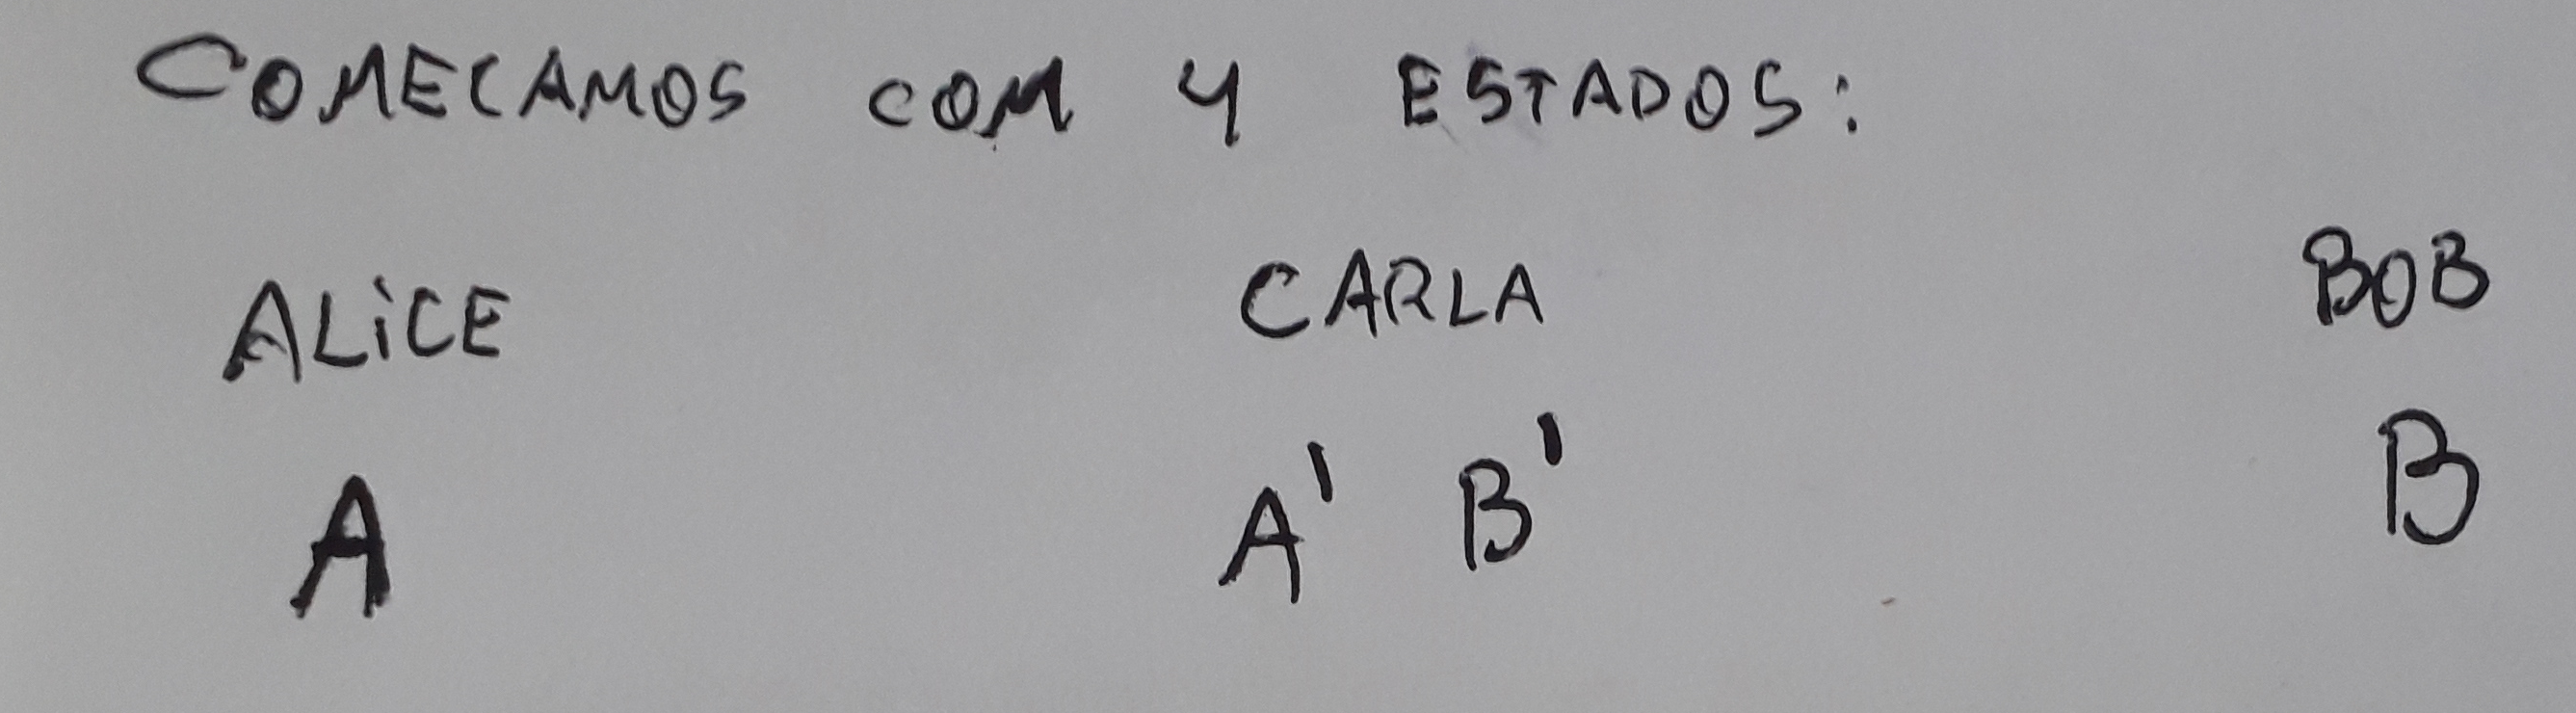 COMECAMOS COM 4 ESTADOS:
ALiCE CARLA BOB
A A' B' B